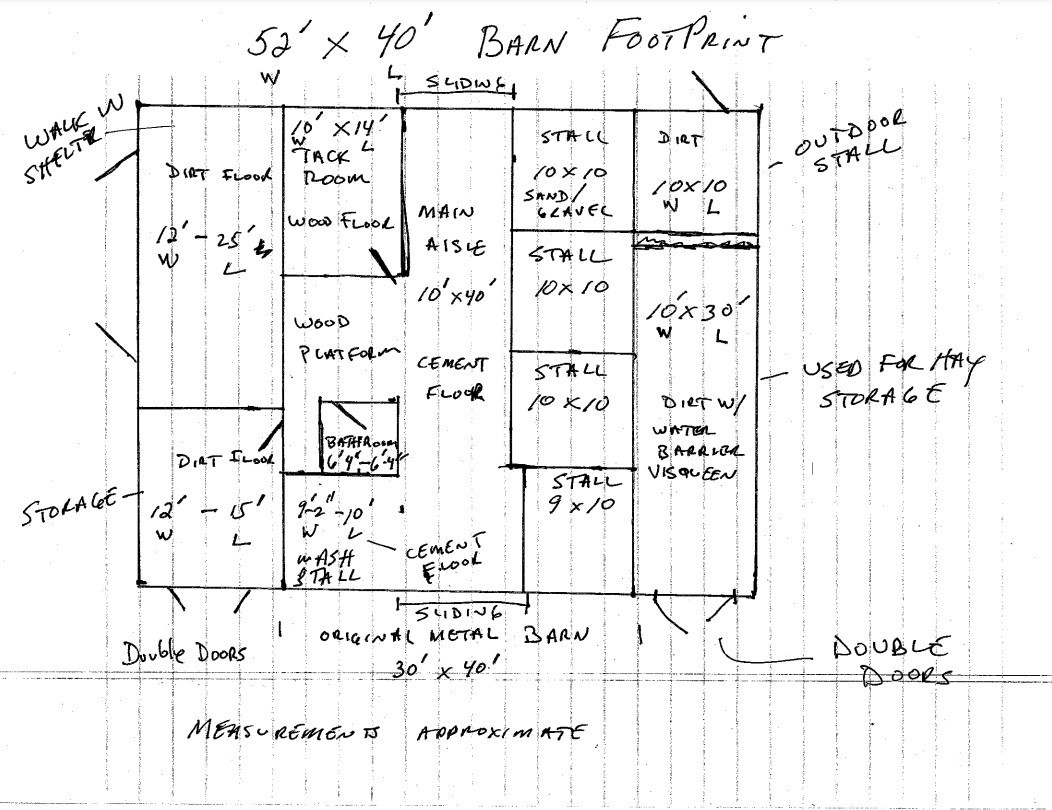 52' x 40' BARN FOOTPRINT
W L
SLIDING
WALK IN
SHELTER
DIRT FLOOR
12' - 25'
W L
10' x 14'
W L
TACK
ROOM
WOOD FLOOR
MAIN
AISLE
10' x 40'
CEMENT
FLOOR
STALL
10 x 10
SAND/
GRAVEL
DIRT
10 x 10
W L
OUTDOOR
STALL
STALL
10 x 10
WOOD
PLATFORM
STALL
10 x 10
10' x 30'
W L
DIRT W/
WATER
BARRIER
VISQUEEN
USED FOR HAY
STORAGE
BATHROOM
6'4" - 6'4"
STORAGE
DIRT FLOOR
12' - 15'
W L
9'-2" - 10'
W L
WASH
STALL
CEMENT
FLOOR
STALL
9 x 10
SLIDING
Double Doors
ORIGINAL METAL BARN
30' x 40'
DOUBLE
DOORS
MEASUREMENTS APPROXIMATE